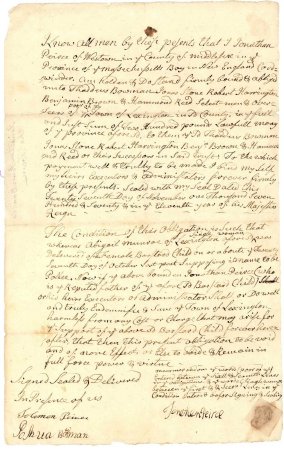 Know all men by these presents that I Jonathan
Peirce of in ye County of Middlesex in ye
Province of ye Massachusetts Bay in New England Cord-
winder Am holden & Do stand firmly bound & obliged
unto Thaddeus Bowman Jonas Stone Robert Harrington
Benjamin Brown & Hammond Reed Select men & Over-
seers of ye Town of Lexington County in ye full
and Just Sum of Two Hundred pounds Lawfull money
of ye province aforesd to them ye sd Thaddeus Bowman
Jonas Stone Robert Harrington Benjn Brown & Hammond
Reed or their Successors in sd Trust To the which
payment well & Truly to be made I bind my self
my heirs Executors & Administrators firmly
by these presents. Sealed with my Seal Dated the
Twenty Seventh Day of November one Thousand Seven
Hundred & Seventy in ye Eleventh year of his Majestys
Reign
The Condition of this Obligation is Such that
Single Woman
whereas Abigail Munroe of Lexington aforesd was
Delivered of a Female Bastard Child on or about ye Twenty
Seventh Day of October Last past its name to be
Now if ye above bound Jonathan Peirce (who
is ye Reputed father of ye above sd Bastard Child)
or his heirs Executors or administrators Shall &
and truly Indemnifie & Save ye Town of Lexington
harmless from any Cost or Charge that may arise for
ye Support of ye above sd Bastard Child for ever
after that then this present obligation to be void
and of none Effect or Else to abide & Remain in
full force power & virtue
Signed Sealed & Delivered
In Presence of us
Solomon Peirce
Joshua
Jonathan Peirce